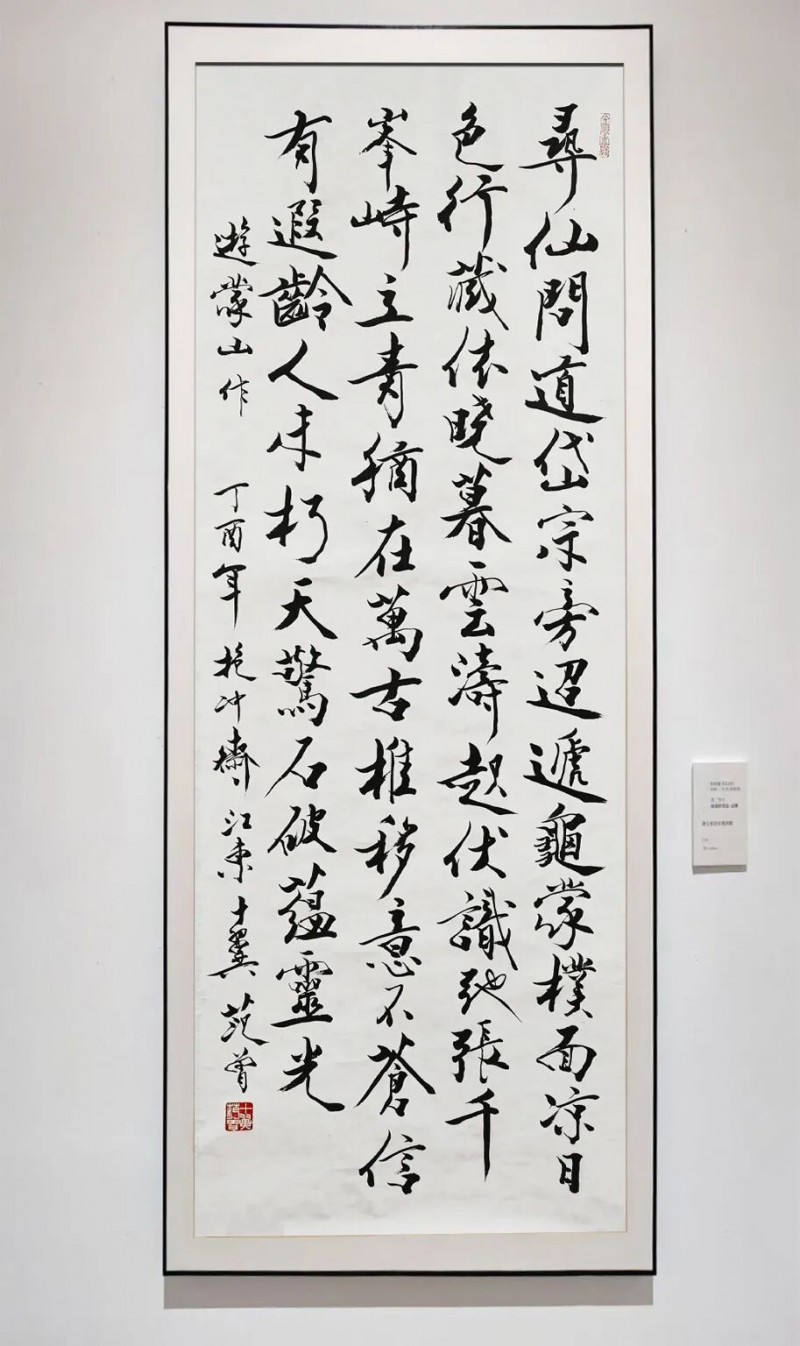 尋仙問道岱宗旁迢遞龜蒙樸面凉日
色行藏依曉暮雲濤起伏識弛張千
峯峙立青猶在萬古推移意不蒼信
有遐齡人未朽天驚石破蘊靈光
遊蒙山作 丁酉年 抱冲齋 江東十翼 范曾